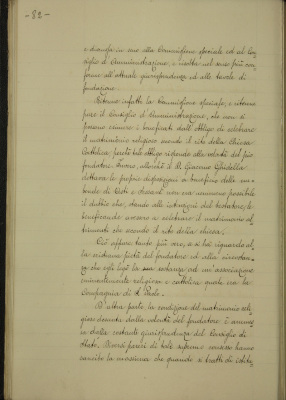 - 82 -
e diansfa in uno alla Commissione speciale ed al Con
siglio d'Amministrazione, è risolta nel senso più con
forme all'attuale giurisprudenza ed alle tavole di
fondazione.
Ritenne infatti la Commissione speciale, e ritenne
pure il Consiglio d'Amministrazione, che non si
possono esimere i beneficati dall'obbligo di celebrare
il matrimonio religioso secondo il rito della Chiesa
Cattolica, perchè tale obbligo risponde alla volontà del pio
fondatore. Invero, allorchè il M. Giacomo Ghisella
dettava le proprie disposizioni a beneficio delle
di Asti e non era nemmeno possibile
il dubbio che, stando alle istruzioni del testatore, le
beneficande avessero a celebrare il matrimonio al
trimenti che secondo il rito della chiesa.
Ciò appare tanto più vero, se si ha riguardo al
la evidente pietà del fondatore ed alla circostan
za che egli legò la sua sostanza ad un'associazione
eminentemente religiosa e cattolica quale era la
Compagnia di S. Paolo.
D'altra parte, la condizione del matrimonio reli
gioso dettata dalla volontà del fondatore è ammes
sa dalla costante giurisprudenza del Consiglio di
Stato. Diversi pareri di tale supremo consesso hanno
sancito la massima che quando si tratti di istitu